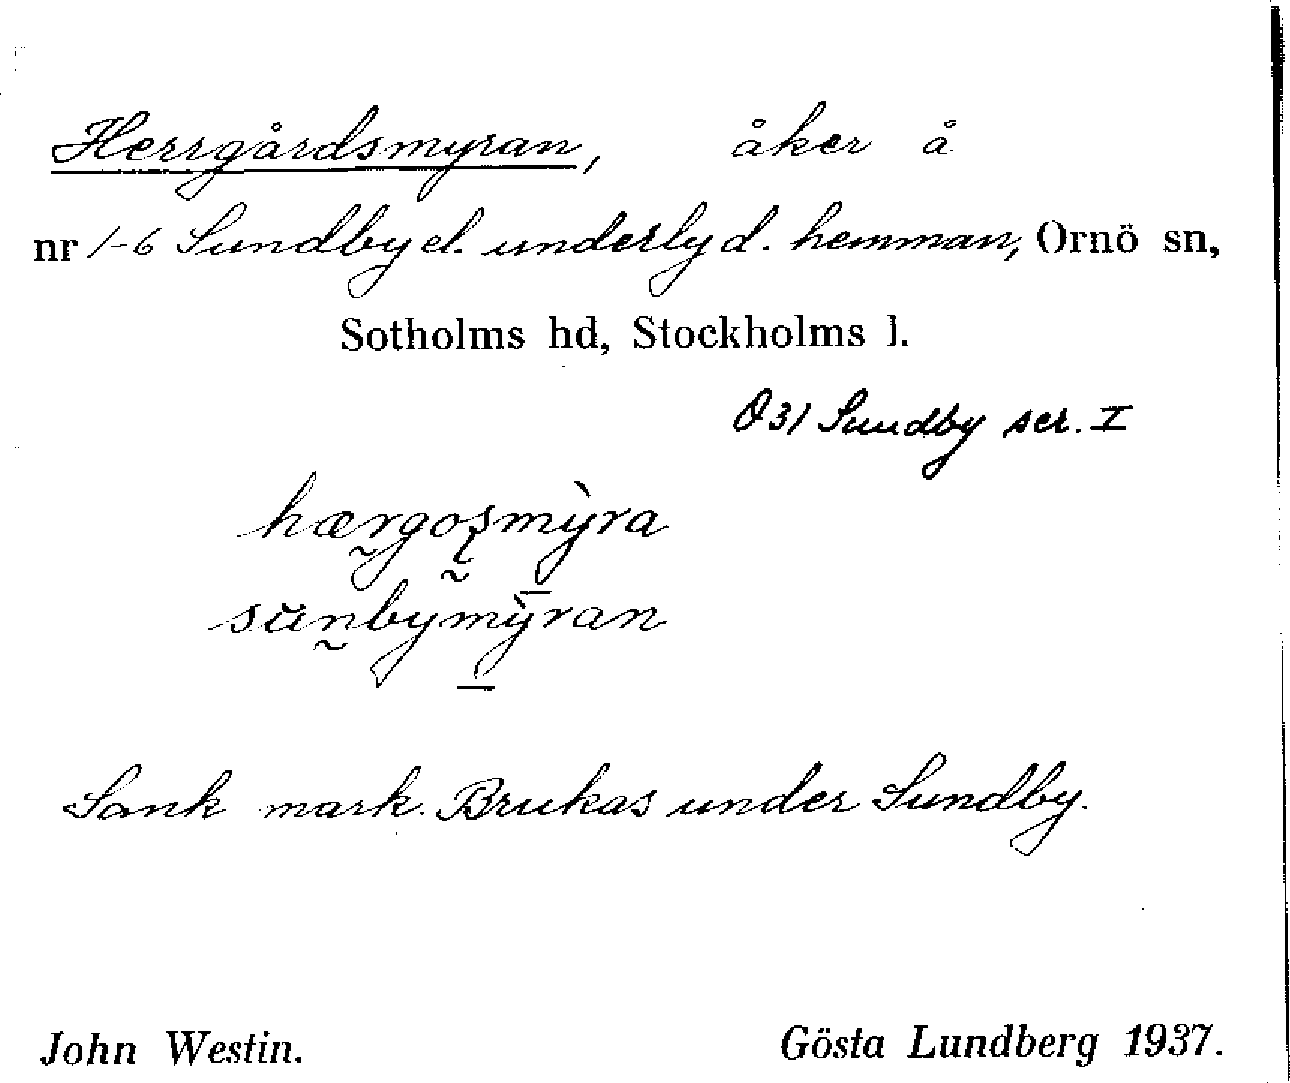 Herrgårdsmyran, åker å
nr 1-6 Sundby el. underlyd. hemman, Ornö sn,
Sotholms hd, Stockholms l.
Ö31 Sundby ser. I
hærgoʂmỳra
sŭnbymỳran
Sank mark. Brukas under Sundby.
John Westin. Gösta Lundberg 1937.